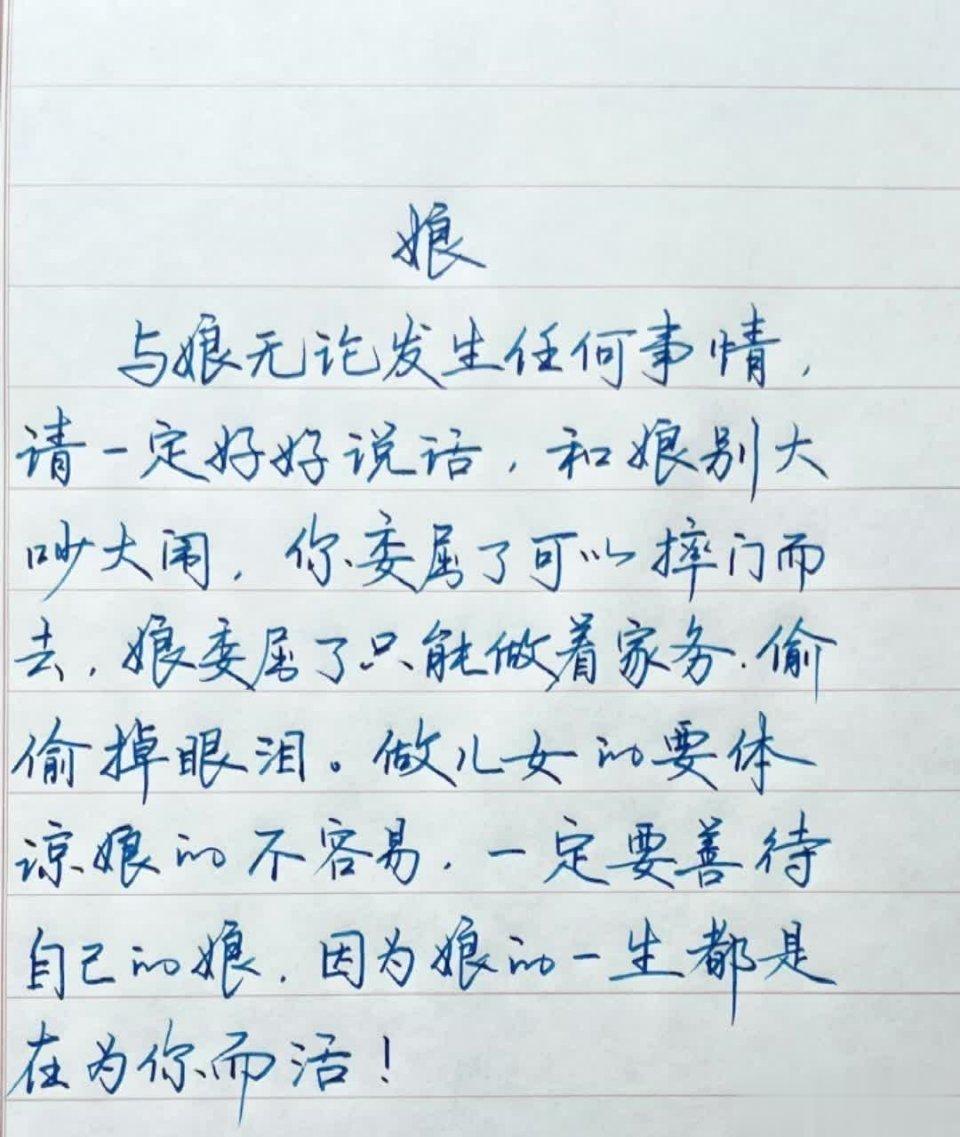 娘
与娘无论发生任何事情,
请一定好好说话,和娘别大
吵大闹,你委屈了可以摔门而
去,娘委屈了只能做着家务.偷
偷掉眼泪。做儿女的要体
谅娘的不容易.一定要善待
自己的娘.因为娘的一生都是
在为你而活!